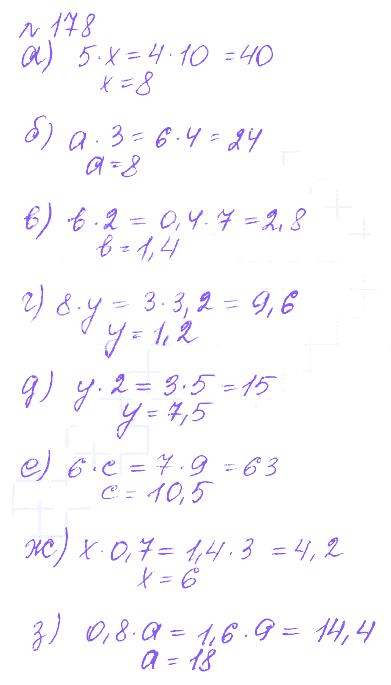 № 178
а) 5·x = 4·10 = 40
x = 8
б) a·3 = 6·4 = 24
a = 8
в) b·2 = 0,4·7 = 2,8
b = 1,4
г) 8·y = 3·3,2 = 9,6
y = 1,2
д) y·2 = 3·5 = 15
y = 7,5
е) 6·c = 7·9 = 63
c = 10,5
ж) x·0,7 = 1,4·3 = 4,2
x = 6
з) 0,8·a = 1,6·9 = 14,4
a = 18